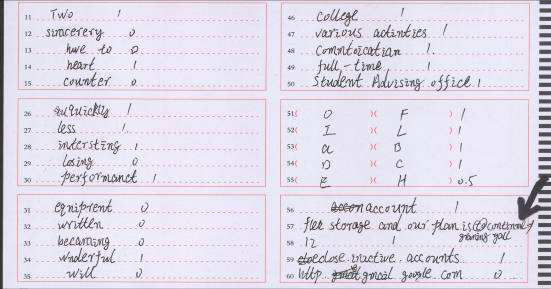 11 Two 1
12 sincerery 0
13 hwe to 0
14 heart 1
15 counter 0
26 quickly 1
27 less 1
28 intersting 1
29 losing 0
30 performanct 1
31 equiprent 0
32 written 0
33 becoming 0
34 wnderful 1
35 will 0
46 college 1
47 various activities 1
48 Commtoication 1
49 full-time 1
50 Student Advising office 1
51( O )( F ) 1
52( I )( L ) 1
53( a )( B ) 1
54( D )( C ) 1
55( E )( H ) 0.5
56 account 1
57 flee storage and our plan is
58 12 1
59 close inactive accounts 1
60 http gmcil google com 0